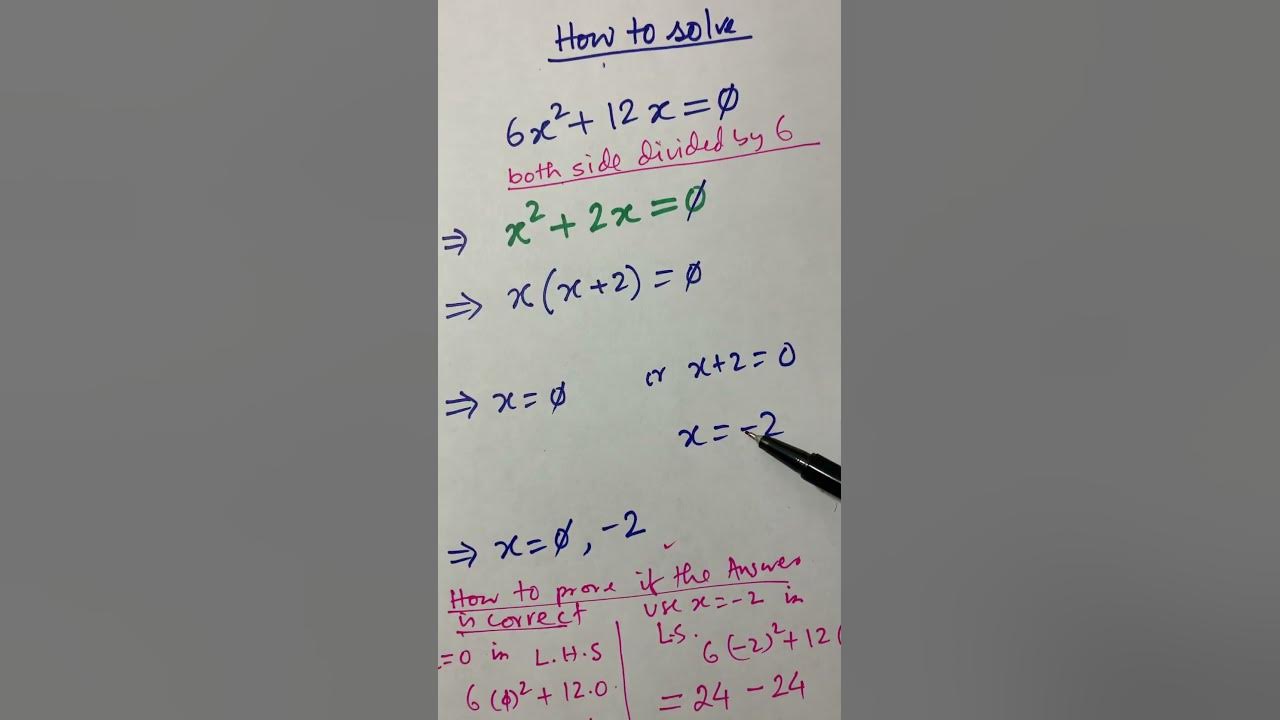 How to solve
6x²+ 12x = 0
both side divided by 6
⇒ x² + 2x = 0
⇒ x(x+2) = 0
⇒ x = 0 or x+2 = 0
x = -2
⇒ x = 0, -2
How to prove if the Answer
is correct
=0 in L.H.S
6(0)² + 12.0
use x = -2 in
L.S.
6(-2)² + 12(
= 24 - 24